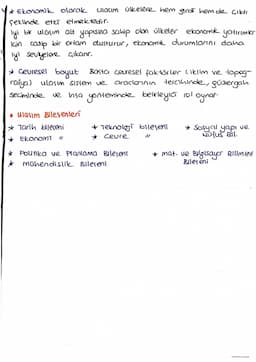 * Ekonomik olarak ulaşım ülkelere hem girdi hem de çıktı
şeklinde etki etmektedir.
İyi bir ulaşım alt yapısına sahip olan ülkeler ekonomik yatırımlar
için cazip bir ortam oluşturur, ekonomik durumlarını daha
iyi seviyelere çıkarır.
* Çevresel boyut: Bazı çevresel faktörler (iklim ve topog-
rafya) ulaşım sistem ve araçlarının tercihinde, güzergah
seçiminde ve inşa yönteminde belirleyici rol oynar.
* Ulaşım Bileşenleri
* Tarih bileşeni * Teknoloji bileşeni * Sosyal yapı ve
nüfus bil.
* Ekonomi " * Çevre "
* Politika ve Planlama Bileşeni * mat. ve Bilgisayar Bilimleri
Bileşeni
* mühendislik Bileşeni